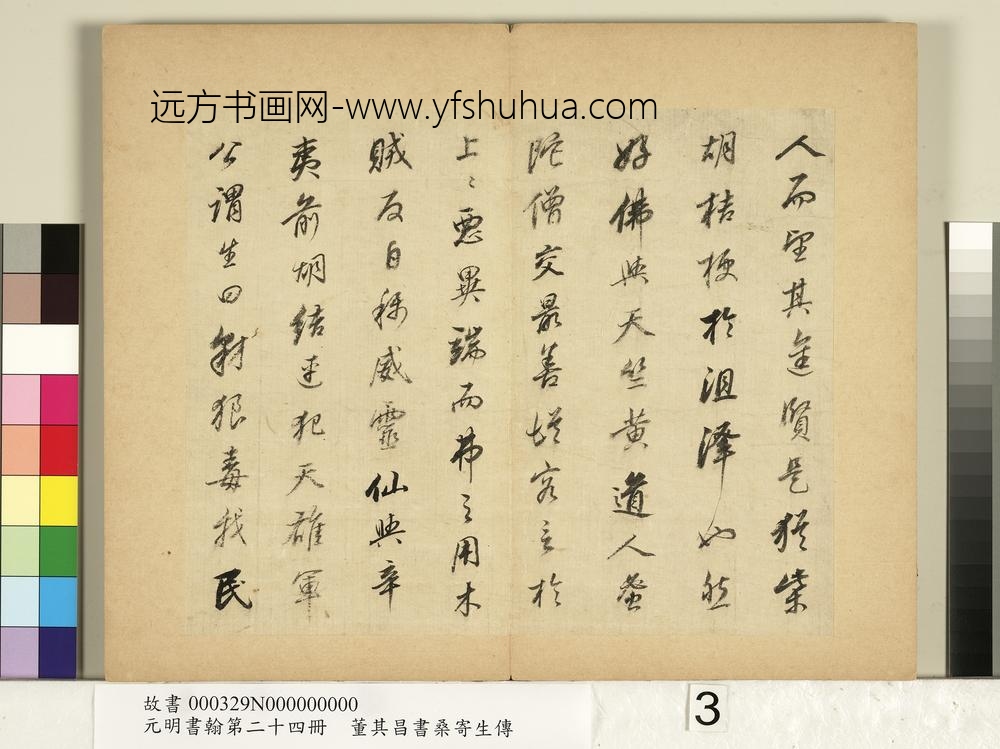 远方书画网-www.yfshuhua.com
人而望其進賢是猶柴
胡桔梗於沮澤也然
好佛與天竺黃道人蜜
陀僧交最善從容言於
上〻惡異端而弗之用木
賊反自稱威靈仙與辛
夷前胡結連犯天雄軍
公謂生曰豺狼毒我民
故書 000329N000000000
元明書翰第二十四冊 董其昌書桑寄生傳
3